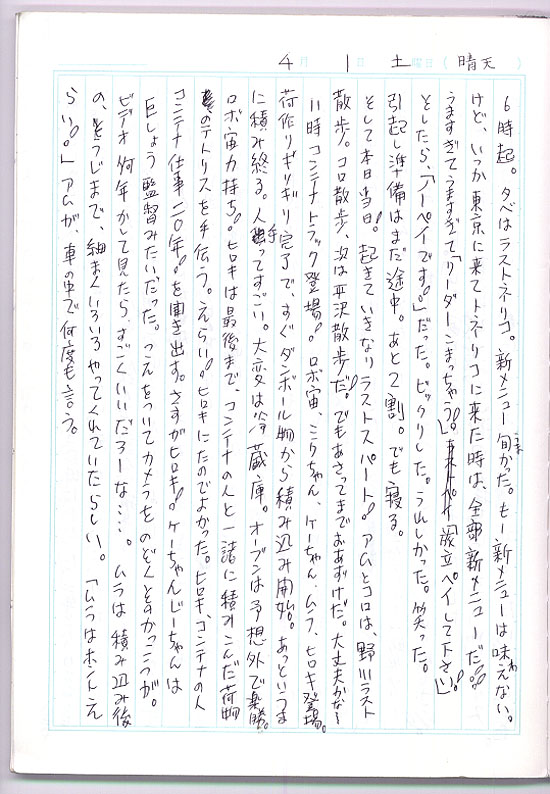 4月 1日 土曜日(晴天)
6時起。夕べはラストネリコ。新メニュー旬かった。もー新メニューは味わえない。
けど、いつか東京に来てトネリコに来た時は、全部新メニューだ!!
うますぎてうますぎて「リーダーこまっちゃう!」「成立ペイして下さい!」
としたら、「ノーペイです!」だった。ビックリした。うれしかった。笑った。
引起し準備はまだ途中。あと2割。でも寝る。
そして本日当日!起きていきなりラストスパート!アムとコロは、野川ラスト
散歩。コロ散歩、次は平沢散歩だ!でもあさってまでおあずけだ。大丈夫かなー
11時コンテナトラック登場!ロボ宙、ミワちゃん、ケーちゃん、ムラ、ヒロキ登場。
荷作りギリギリ完了で、すぐダンボール物から積み込み開始。あっというま
に積み終る。人手ってすごい。大変は冷蔵庫。オーブンは予想外で楽勝。
ロボ宙力持ち!ヒロキは最後まで、コンテナの人と一諸に積みこんだ荷物
のテトリスを手伝う。えらい!ヒロキにたのでよかった。ヒロキ、コンテナの人
コンテナ仕事二〇年!を聞き出す。さすがヒロキ!ケーちゃんじーちゃんは
巨しょう監督みたいだった。つえをついてカメラをのぞくとすかっこつが。
ビデオ何年かして見たら、すごくいいだろーな…。ムラは積み込み後
の、そうじまで、細まくいろいろやってくれていたらしい。「ムラはホントえ
らい!」アムが、車の中で何度も言う。